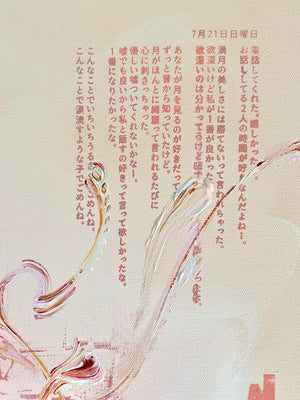 7月21日日曜日
電話してくれた。嬉しかった
お話ししてる2人の時間が好きなんだよねー。
満月の美しさには勝てないって言われちゃった。
欲深いけど私が1番が良かった
欲深いのは分かってるけど
あなたが月を見るのが好きだって
ずっと昔から知っていたけど。
月がほんまに綺麗って言われるたびに
心に刺さっちゃった。
優しい嘘ついてくれないかなー。
嘘でも良いから私と話すの好きって言って欲しかったな。
1番になりたかったな。
こんなことでいちいちうる ごめんね。
こんなことで涙流すような子でごめんね。